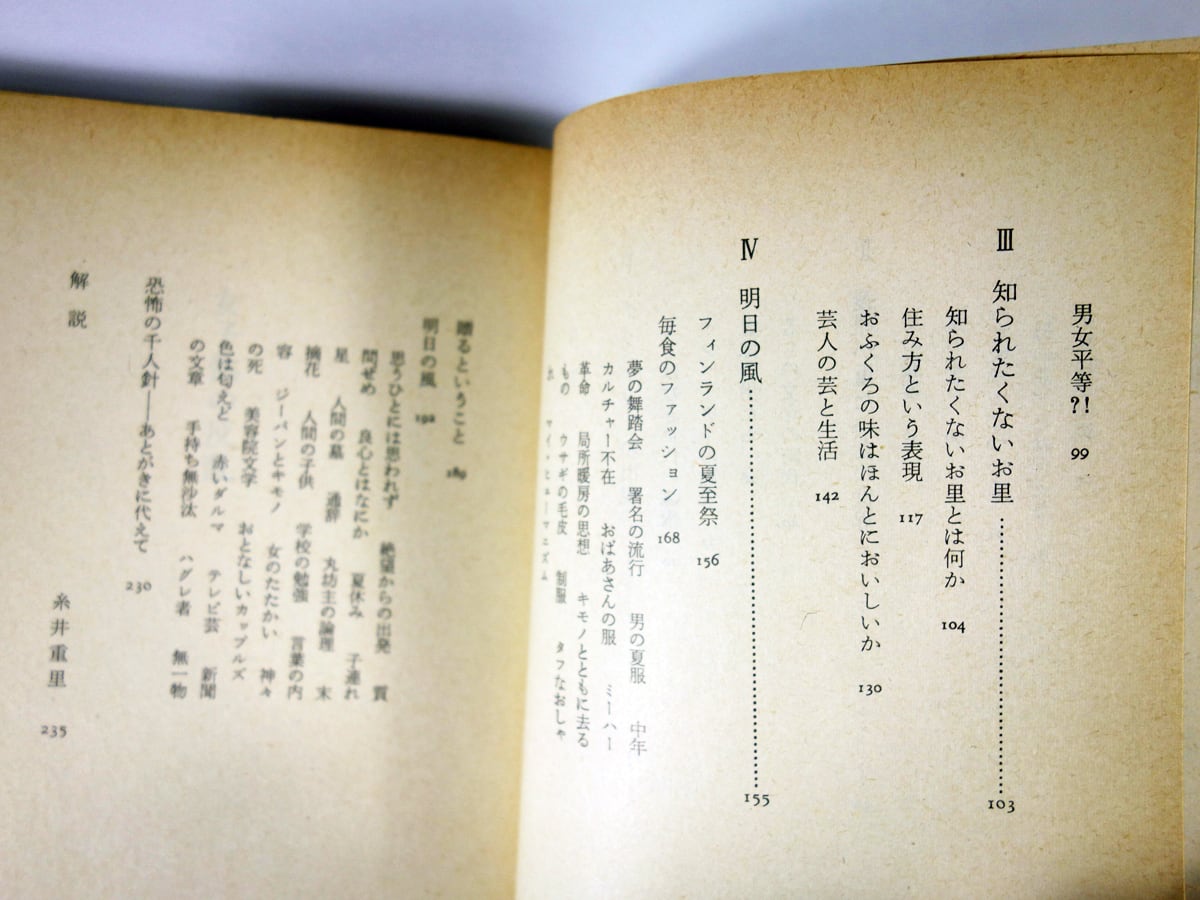 男女平等?! 99
Ⅲ 知られたくないお里 103
知られたくないお里とは何か 104
住み方という表現 117
おふくろの味はほんとにおいしいか 130
芸人の芸と生活 142
Ⅳ 明日の風 155
フィンランドの夏至祭 156
毎食のファッション 168
夢の舞踏会 署名の流行 男の夏服 中年
カルチャー不在 おばあさんの服 ミーハー
革命 局所暖房の思想 キモノとともに去る
もの ウサギの毛皮 制服 タフなおしゃ
れ マイッヒューマニズム
贈るということ 189
明日の風 192
思うひとには思われず 絶望からの出発 質
問ぜめ 良心とはなにか 夏休み 子連れ
星 人間の墓 通辞 丸坊主の論理 末
摘花 人間の子供 学校の勉強 言葉の内
容 ジーパンとキモノ 女のたたかい 神々
の死 美容院文学 おとなしいカップルズ
色は匂えど 赤いダルマ テレビ芸 新聞
の文章 手持ち無沙汰 ハグレ者 無一物
恐怖の千人針——あとがきに代えて 230
解説 糸井重里 235